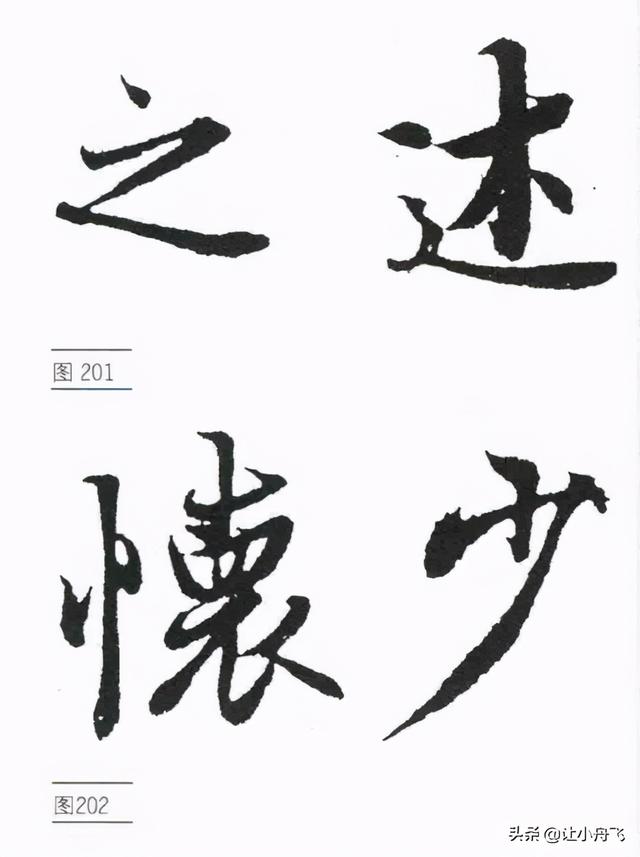 之 述
图 201
懷 少
图202
头条 @让小舟飞